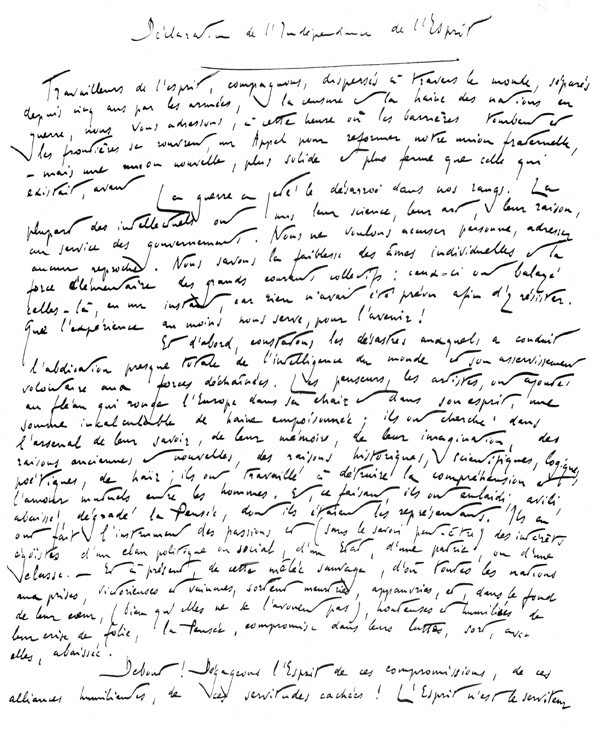 Déclaration de l'Indépendance de l'Esprit
Travailleurs de l'esprit, compagnons, dispersés à travers le monde, séparés
depuis cinq ans par les armées, la censure et la haine des nations en
guerre, nous vous adressons, à cette heure où les barrières tombent et
les frontières se rouvrent, un Appel pour reformer notre union fraternelle,
- mais une union nouvelle, plus solide et plus ferme que celle qui
existait avant
La guerre a jeté le désarroi dans nos rangs. La
plupart des intellectuels ont mis leur science, leur art, leur raison,
au service des gouvernements. Nous ne voulons accuser personne, adresser
aucun reproche. Nous savons la faiblesse des âmes individuelles et la
force élémentaire des grands courants collectifs : ceux-ci ont balayé
celles-là, en un instant, car rien n'avait été prévu afin d'y résister.
Que l'expérience au moins nous serve, pour l'avenir !
Et d'abord, constatons les désastres auxquels a conduit
l'abdication presque totale de l'intelligence du monde et son asservissement
volontaire aux forces déchaînées. Les penseurs, les artistes, ont ajouté
au fléau qui ronge l'Europe dans sa chair et dans son esprit, une
somme incalculable de haine empoisonnée ; ils ont cherché dans
l'arsenal de leur savoir, de leur mémoire, de leur imagination, des
raisons anciennes et nouvelles, des raisons historiques, scientifiques, logiques,
poétiques, de haïr ; ils ont travaillé à détruire la compréhension et
l'amour mutuels entre les hommes. Et, ce faisant, ils ont enlaidi, avili,
abaissé, dégradé la Pensée, dont ils étaient les représentants. Ils en
ont fait l'instrument des passions et (sans le savoir peut-être) des intérêts
égoïstes d'un clan politique ou social, d'un État, d'une patrie, ou d'une
classe. — Et à présent, de cette mêlée sauvage, d'où toutes les nations
aux prises, victorieuses et vaincues, sortent meurtries, appauvries, et, dans le fond
de leur cœur, (bien qu'elles ne se l'avouent pas), honteuses et humiliées de
leur crise de folie, la Pensée, compromise dans leurs luttes, sort, avec
elles, abaissée.
Debout ! Dégageons l'Esprit de ces compromissions, de ces
alliances humiliantes, de ces servitudes cachées ! L'Esprit n'est le serviteur